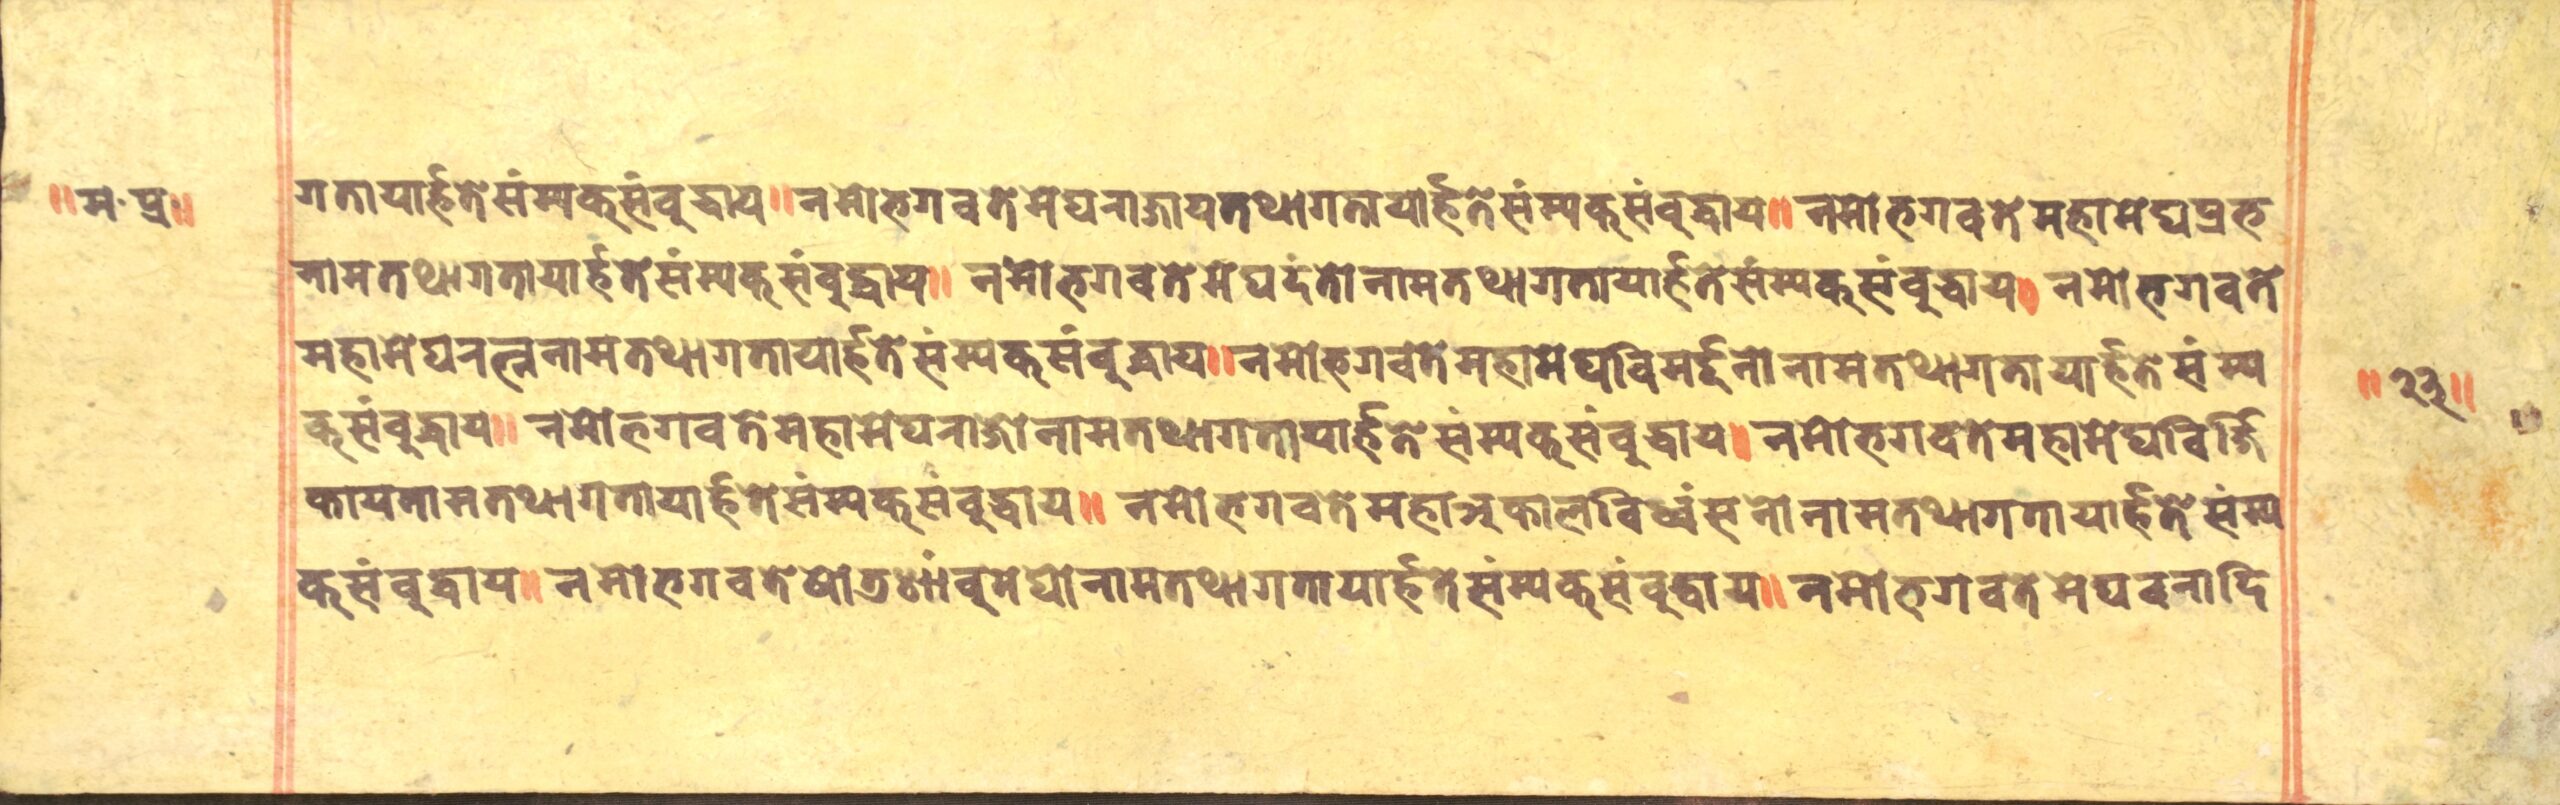 ॥म॰प्र॥
गतायार्हतेसंम्यक्संवुद्धाय॥नमोभगवतेमेघराजायतथागतायार्हतेसंम्यक्संवुद्धाय॥नमोभगवतेमहामेघप्रभ
नामतथागतायार्हतेसंम्यक्संवुद्धाय॥ नमोभगवतेमेघदंतोनामतथागतायार्हतेसंम्यक्संवुद्धाय॥ नमोभगवते
महामेघरत्ननामतथागतायार्हतेसंम्यक्संवुद्धाय॥नमोभगवतेमहामेघविमर्द्दनोनामतथागतायार्हतेसंम्य
क्संवुद्धाय॥ नमोभगवतेमहामेघराजोनामतथागतायार्हतेसंम्यक्संवुद्धाय॥ नमोभगवतेमहामेघविर्जि
कायनामतथागतायार्हतेसंम्यक्संवुद्धाय॥ नमोभगवतेमहाअकालविध्वंसनोनामतथागतायार्हतेसंम्य
क्संवुद्धाय॥ नमोभगवतेनामतथागतायार्हतेसंम्यक्संवुद्धाय॥नमोभगवतेमेघवनादि
॥२३॥